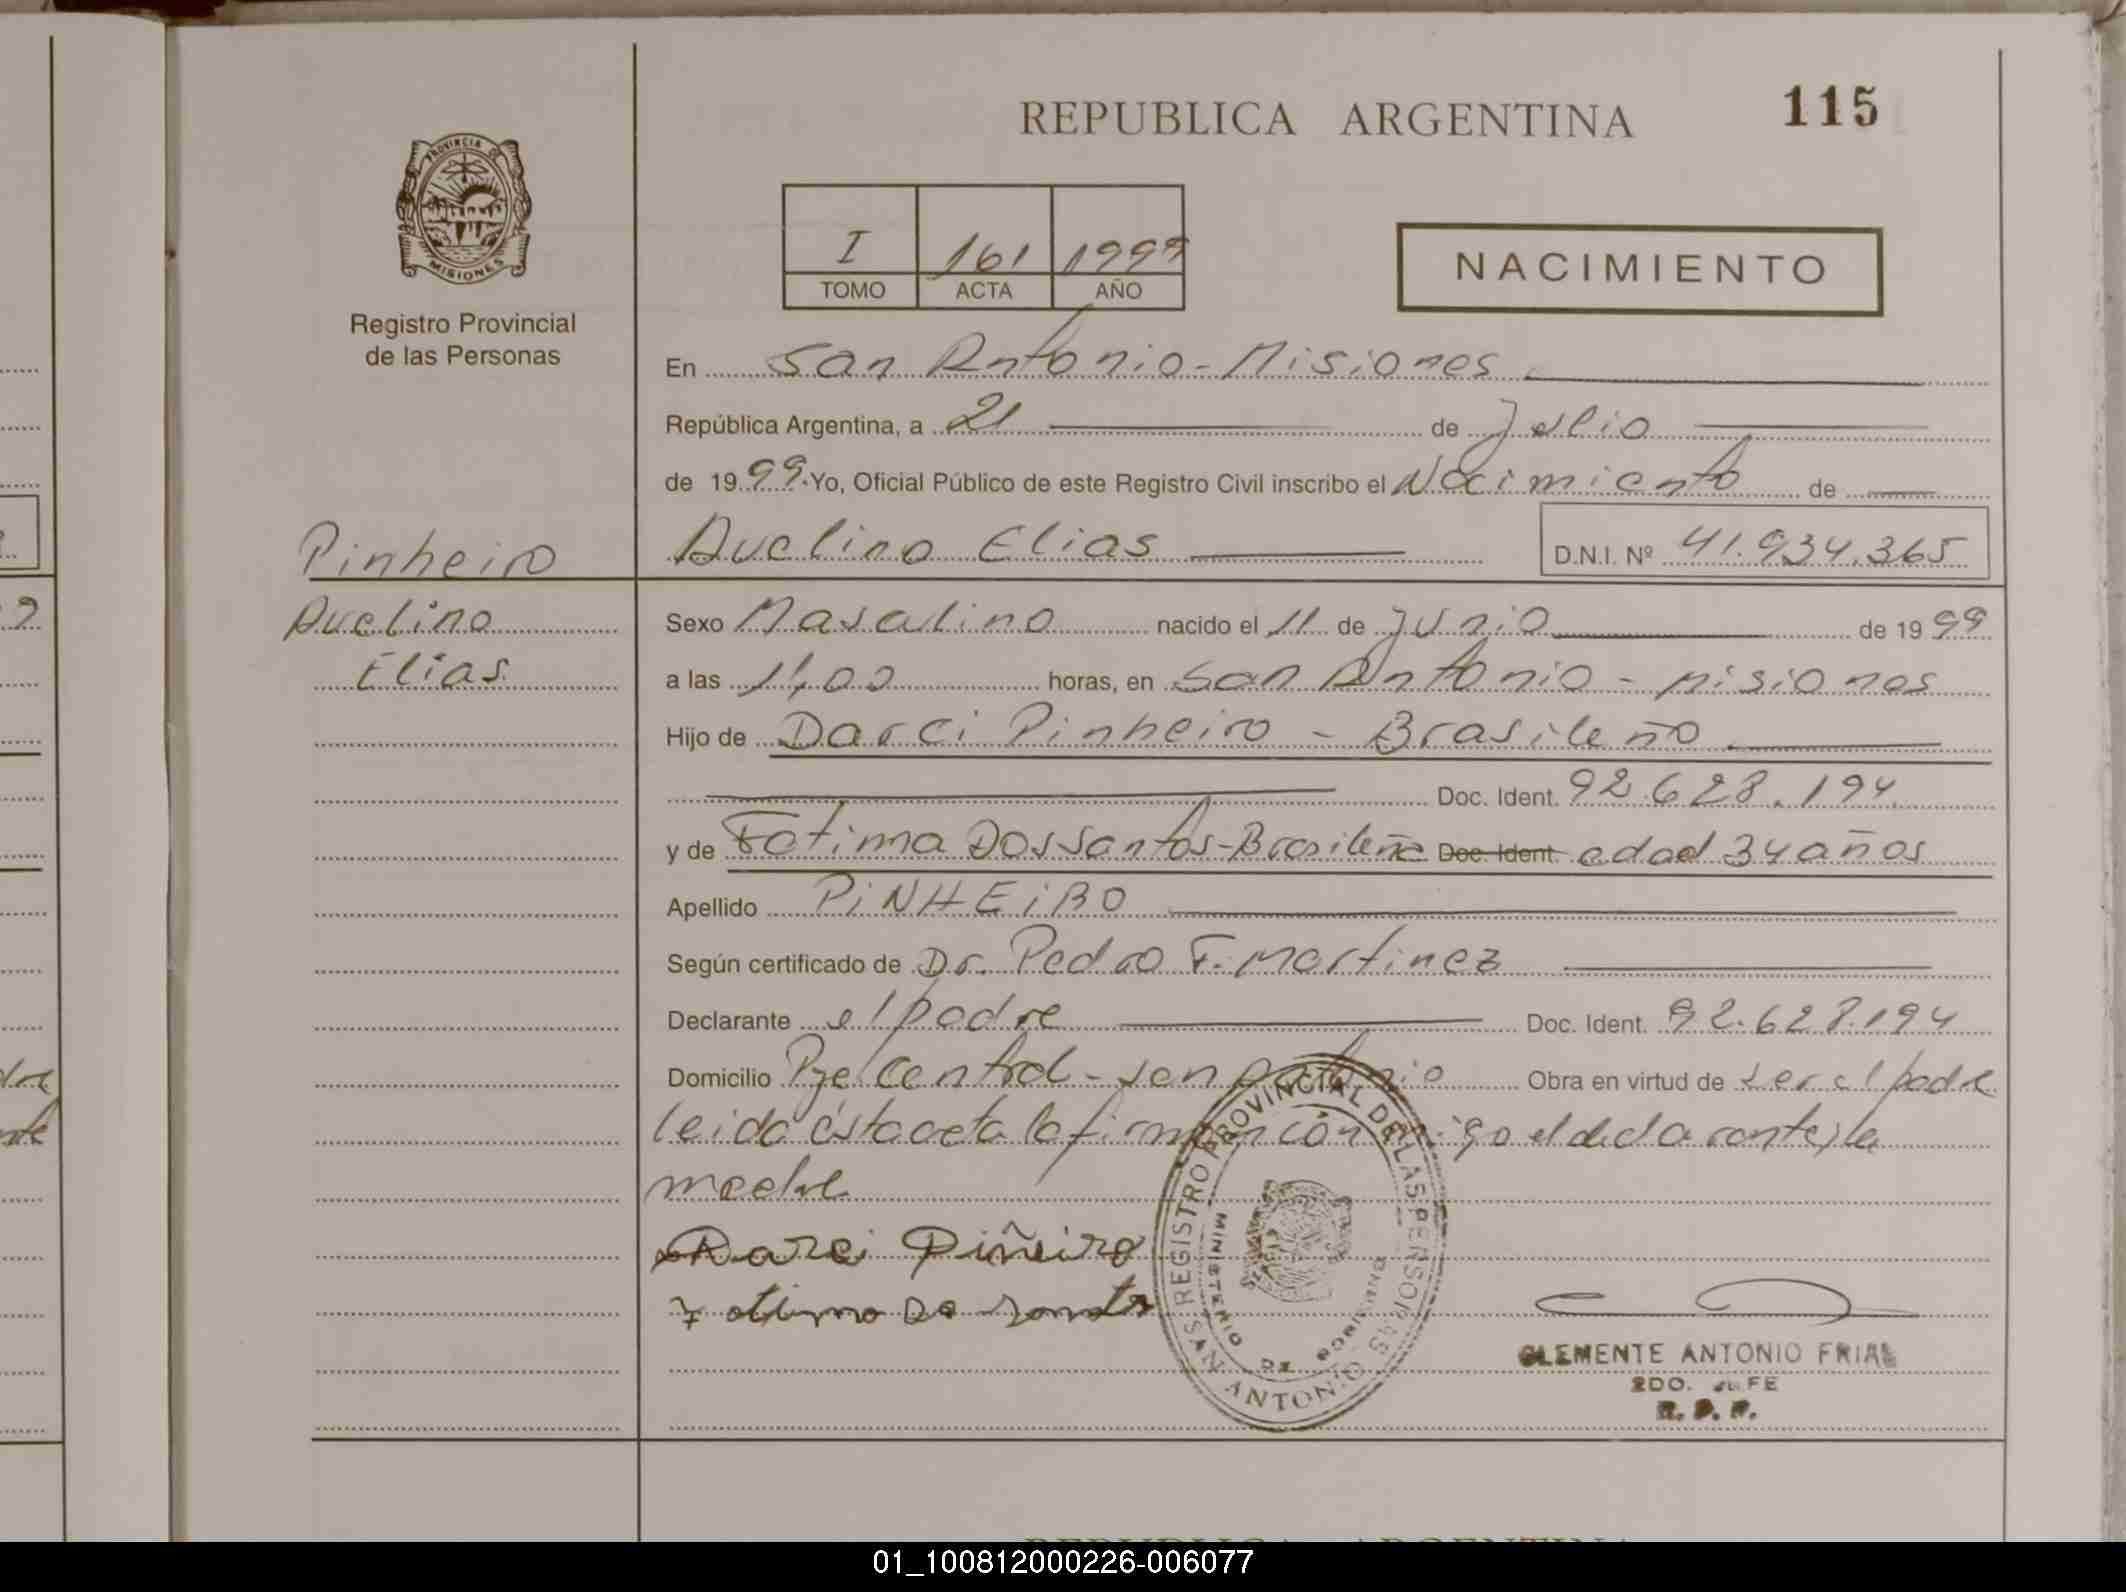 REPUBLICA ARGENTINA
115
PROVINCIA DE
MISIONES
Registro Provincial
de las Personas
I 161 1999
TOMO ACTA AÑO
NACIMIENTO
En San Antonio - Misiones
República Argentina, a 21 de Julio
de 1999. Yo, Oficial Público de este Registro Civil inscribo el Nacimiento de
Avelino Elias D.N.I. Nº 41.934.365
Pinheiro
Avelino
Elias
Sexo Masculino nacido el 11 de Junio de 1999
a las 11,00 horas, en San Antonio - Misiones
Hijo de Darci Pinheiro - Brasileño
Doc. Ident. 92.628.194
y de Fatima Dos Santos - Brasileña Doc. Ident. edad 34 años
Apellido PiNHEiRO
Según certificado de Dr. Pedro F. Martinez
Declarante el padre Doc. Ident. 92.628.194
Domicilio Pje Central - San Antonio Obra en virtud de ser el padre
leida ésta acta la firman cón migo el declarante y la
madre
Darci Piñeiro
REGISTRO PROVINCIAL DE LAS PERSONAS
MINISTERIO DE GOBIERNO
SAN ANTONIO
CLEMENTE ANTONIO FRIAL
2DO. JEFE
R. P. P.
REPUBLICA ARGENTINA
01_100812000226-006077